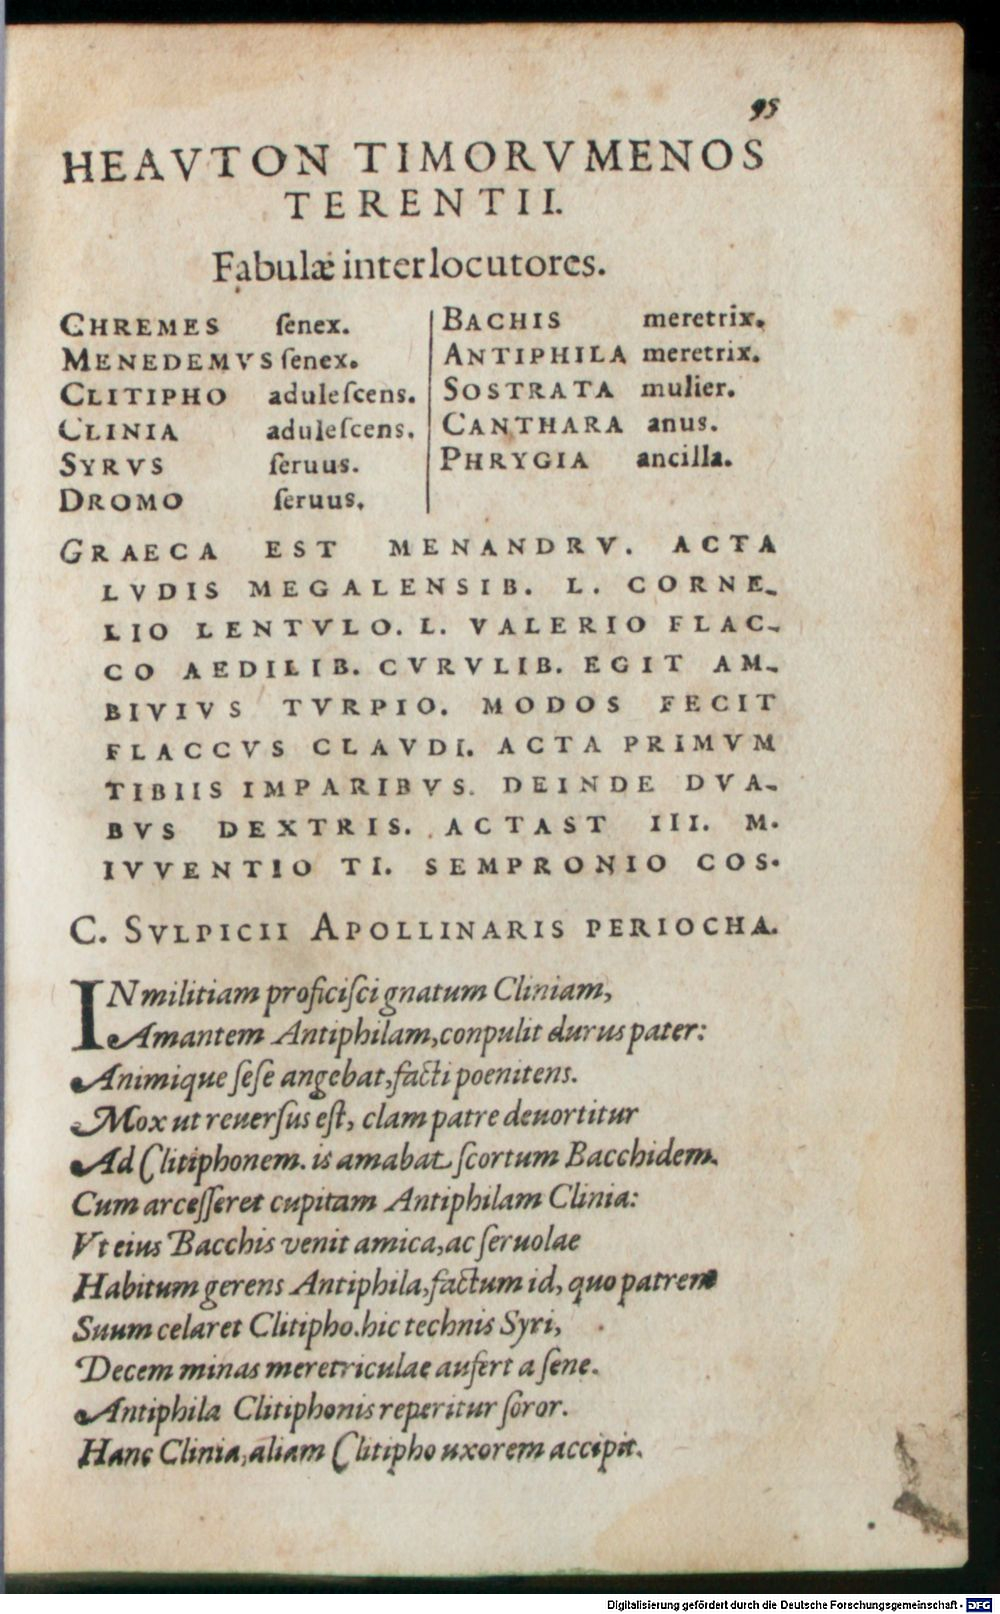 95
HEAVTON TIMORVMENOS
TERENTII.
Fabulæ interlocutores.
CHREMES ſenex.
MENEDEMVS ſenex.
CLITIPHO aduleſcens.
CLINIA aduleſcens.
SYRVS ſeruus.
DROMO ſeruus.
BACHIS meretrix.
ANTIPHILA meretrix.
SOSTRATA mulier.
CANTHARA anus.
PHRYGIA ancilla.
GRAECA EST MENANDRV. ACTA
LVDIS MEGALENSIB. L. CORNE-
LIO LENTVLO. L. VALERIO FLAC-
CO AEDILIB. CVRVLIB. EGIT AM-
BIVIVS TVRPIO. MODOS FECIT
FLACCVS CLAVDI. ACTA PRIMVM
TIBIIS IMPARIBVS. DEINDE DVA-
BVS DEXTRIS. ACTAST III. M.
IVVENTIO TI. SEMPRONIO COS.
C. SVLPICII APOLLINARIS PERIOCHA.
IN militiam proficiſci gnatum Cliniam,
Amantem Antiphilam, conpulit durus pater:
Animique ſeſe angebat, facti poenitens.
Mox ut reuerſus eſt, clam patre deuortitur
Ad Clitiphonem. is amabat ſcortum Bacchidem.
Cum arceſſeret cupitam Antiphilam Clinia:
Vt eius Bacchis venit amica, ac ſeruolae
Habitum gerens Antiphila, factum id, quo patrem
Suum celaret Clitipho. hic technis Syri,
Decem minas meretriculae aufert a ſene.
Antiphila Clitiphonis reperitur ſoror.
Hanc Clinia, aliam Clitipho uxorem accipit.
Digitalisierung gefördert durch die Deutsche Forschungsgemeinschaft - DFG